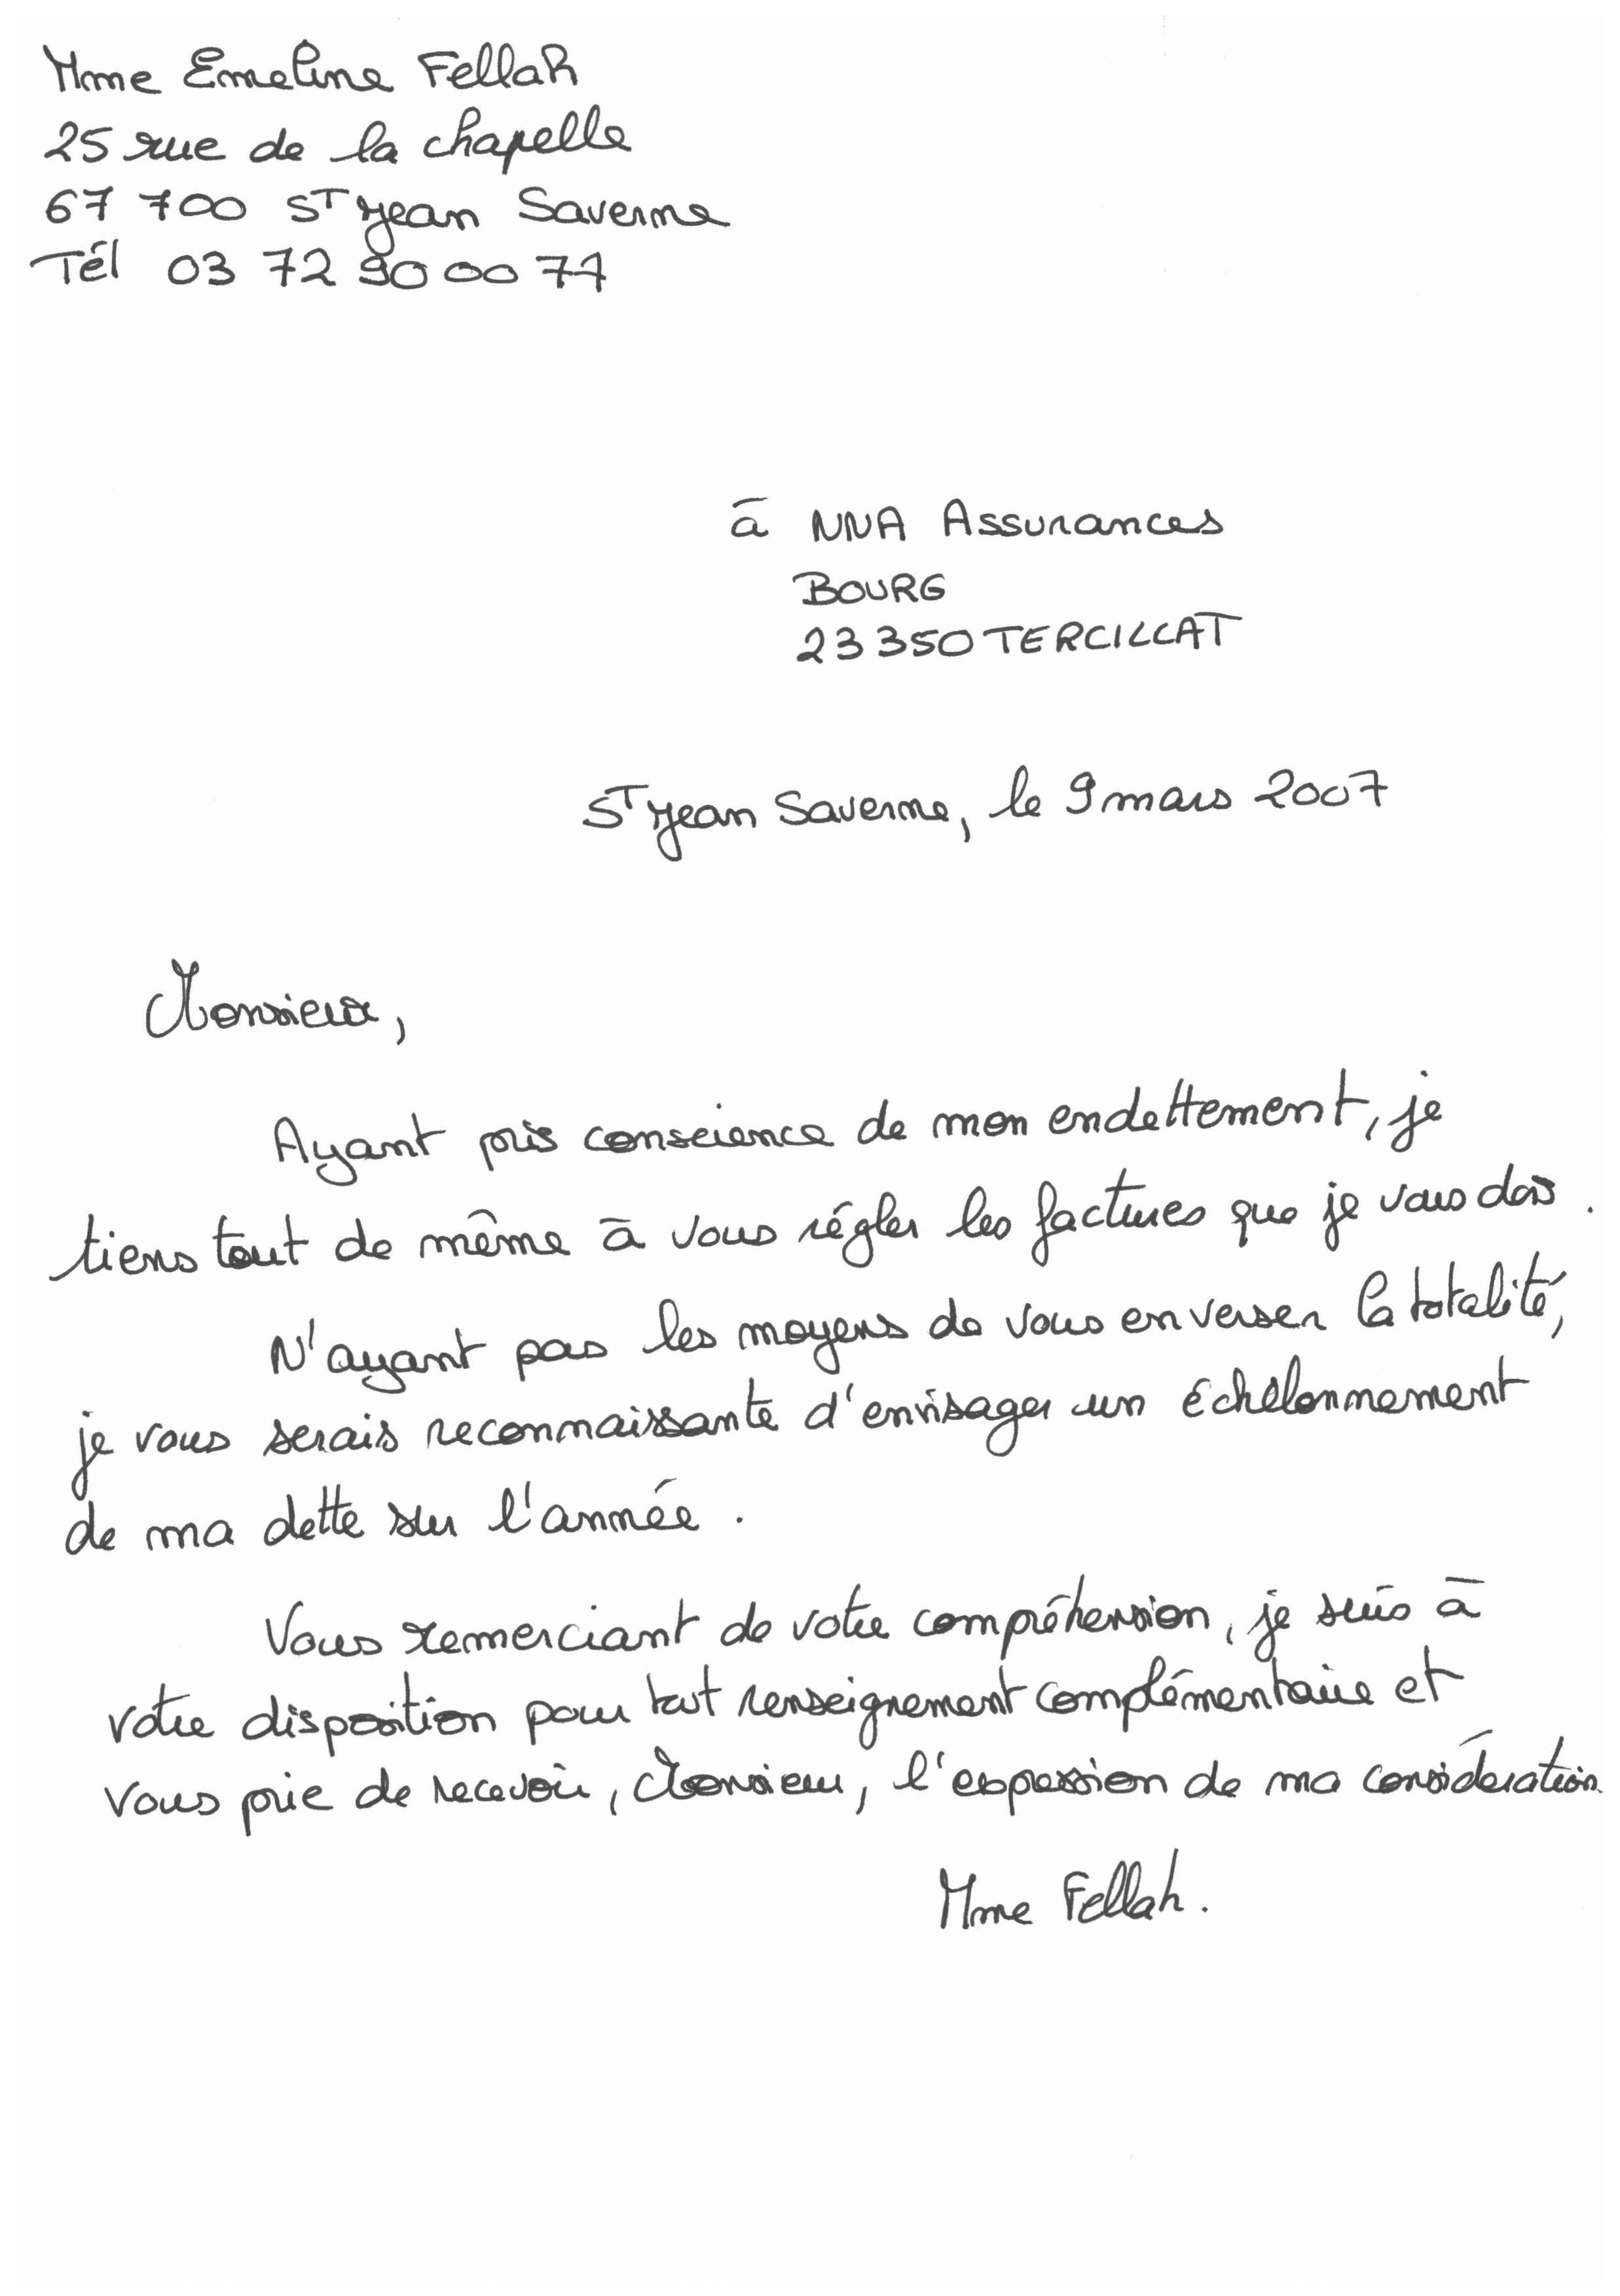 Mme Emeline Fellah
25 rue de la chapelle
67 700 ST Jean Saverne
Tél 03 72 90 00 71
à NNA Assurances
BOURG
23 350 TERCILLAT
ST Jean Saverne, le 9 mars 2007
Monsieur,
Ayant pris conscience de mon endettement, je
tiens tout de même à vous régler les factures que je vous dois.
N'ayant pas les moyens de vous en verser la totalité,
je vous serais reconnaissante d'envisager un échelonnement
de ma dette sur l'année.
Vous remerciant de votre compréhension, je suis à
votre disposition pour tout renseignement complémentaire et
vous prie de recevoir, Monsieur, l'expession de ma considération
Mme Fellah.